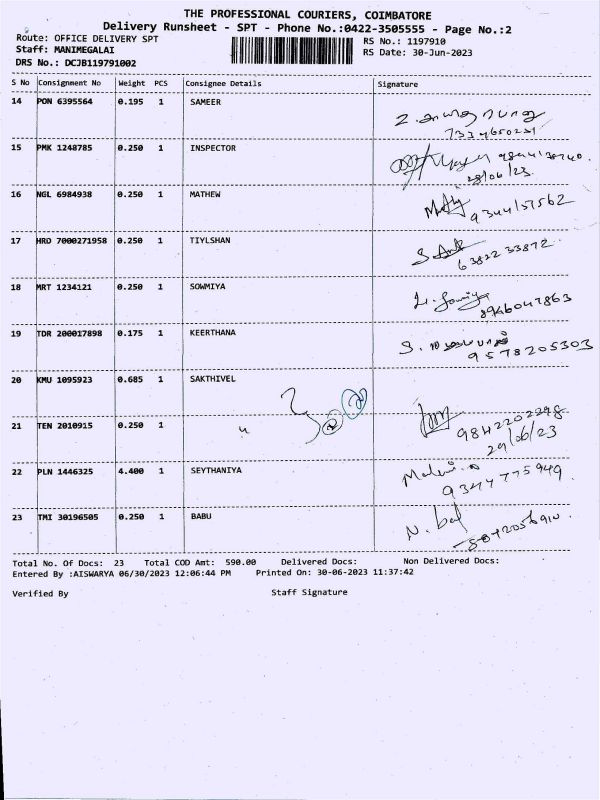 THE PROFESSIONAL COURIERS, COIMBATORE
Delivery Runsheet - SPT - Phone No.:0422-3505555 - Page No.:2
Route: OFFICE DELIVERY SPT RS No.: 1197910
Staff: MANIMEGALAI RS Date: 30-Jun-2023
DRS No.: DCJB119791002
S No Consignment No Weight PCS Consignee Details Signature
14 PON 6395564 0.195 1 SAMEER
15 PMK 1248785 0.250 1 INSPECTOR
28/06/23
16 NGL 6984938 0.250 1 MATHEW
9344157562
17 HRD 7000271958 0.250 1 TIYLSHAN
6382233872
18 MRT 1234121 0.250 1 SOWMIYA
8946047863
19 TDR 200017898 0.175 1 KEERTHANA
9578205303
20 KMU 1095923 0.685 1 SAKTHIVEL
21 TEN 2010915 0.250 1 "
9842202298
29/06/23
22 PLN 1446325 4.400 1 SEYTHANIYA
9344775949
23 TMI 30196505 0.250 1 BABU
Total No. Of Docs: 23 Total COD Amt: 590.00 Delivered Docs: Non Delivered Docs:
Entered By :AISWARYA 06/30/2023 12:06:44 PM Printed On: 30-06-2023 11:37:42
Verified By Staff Signature